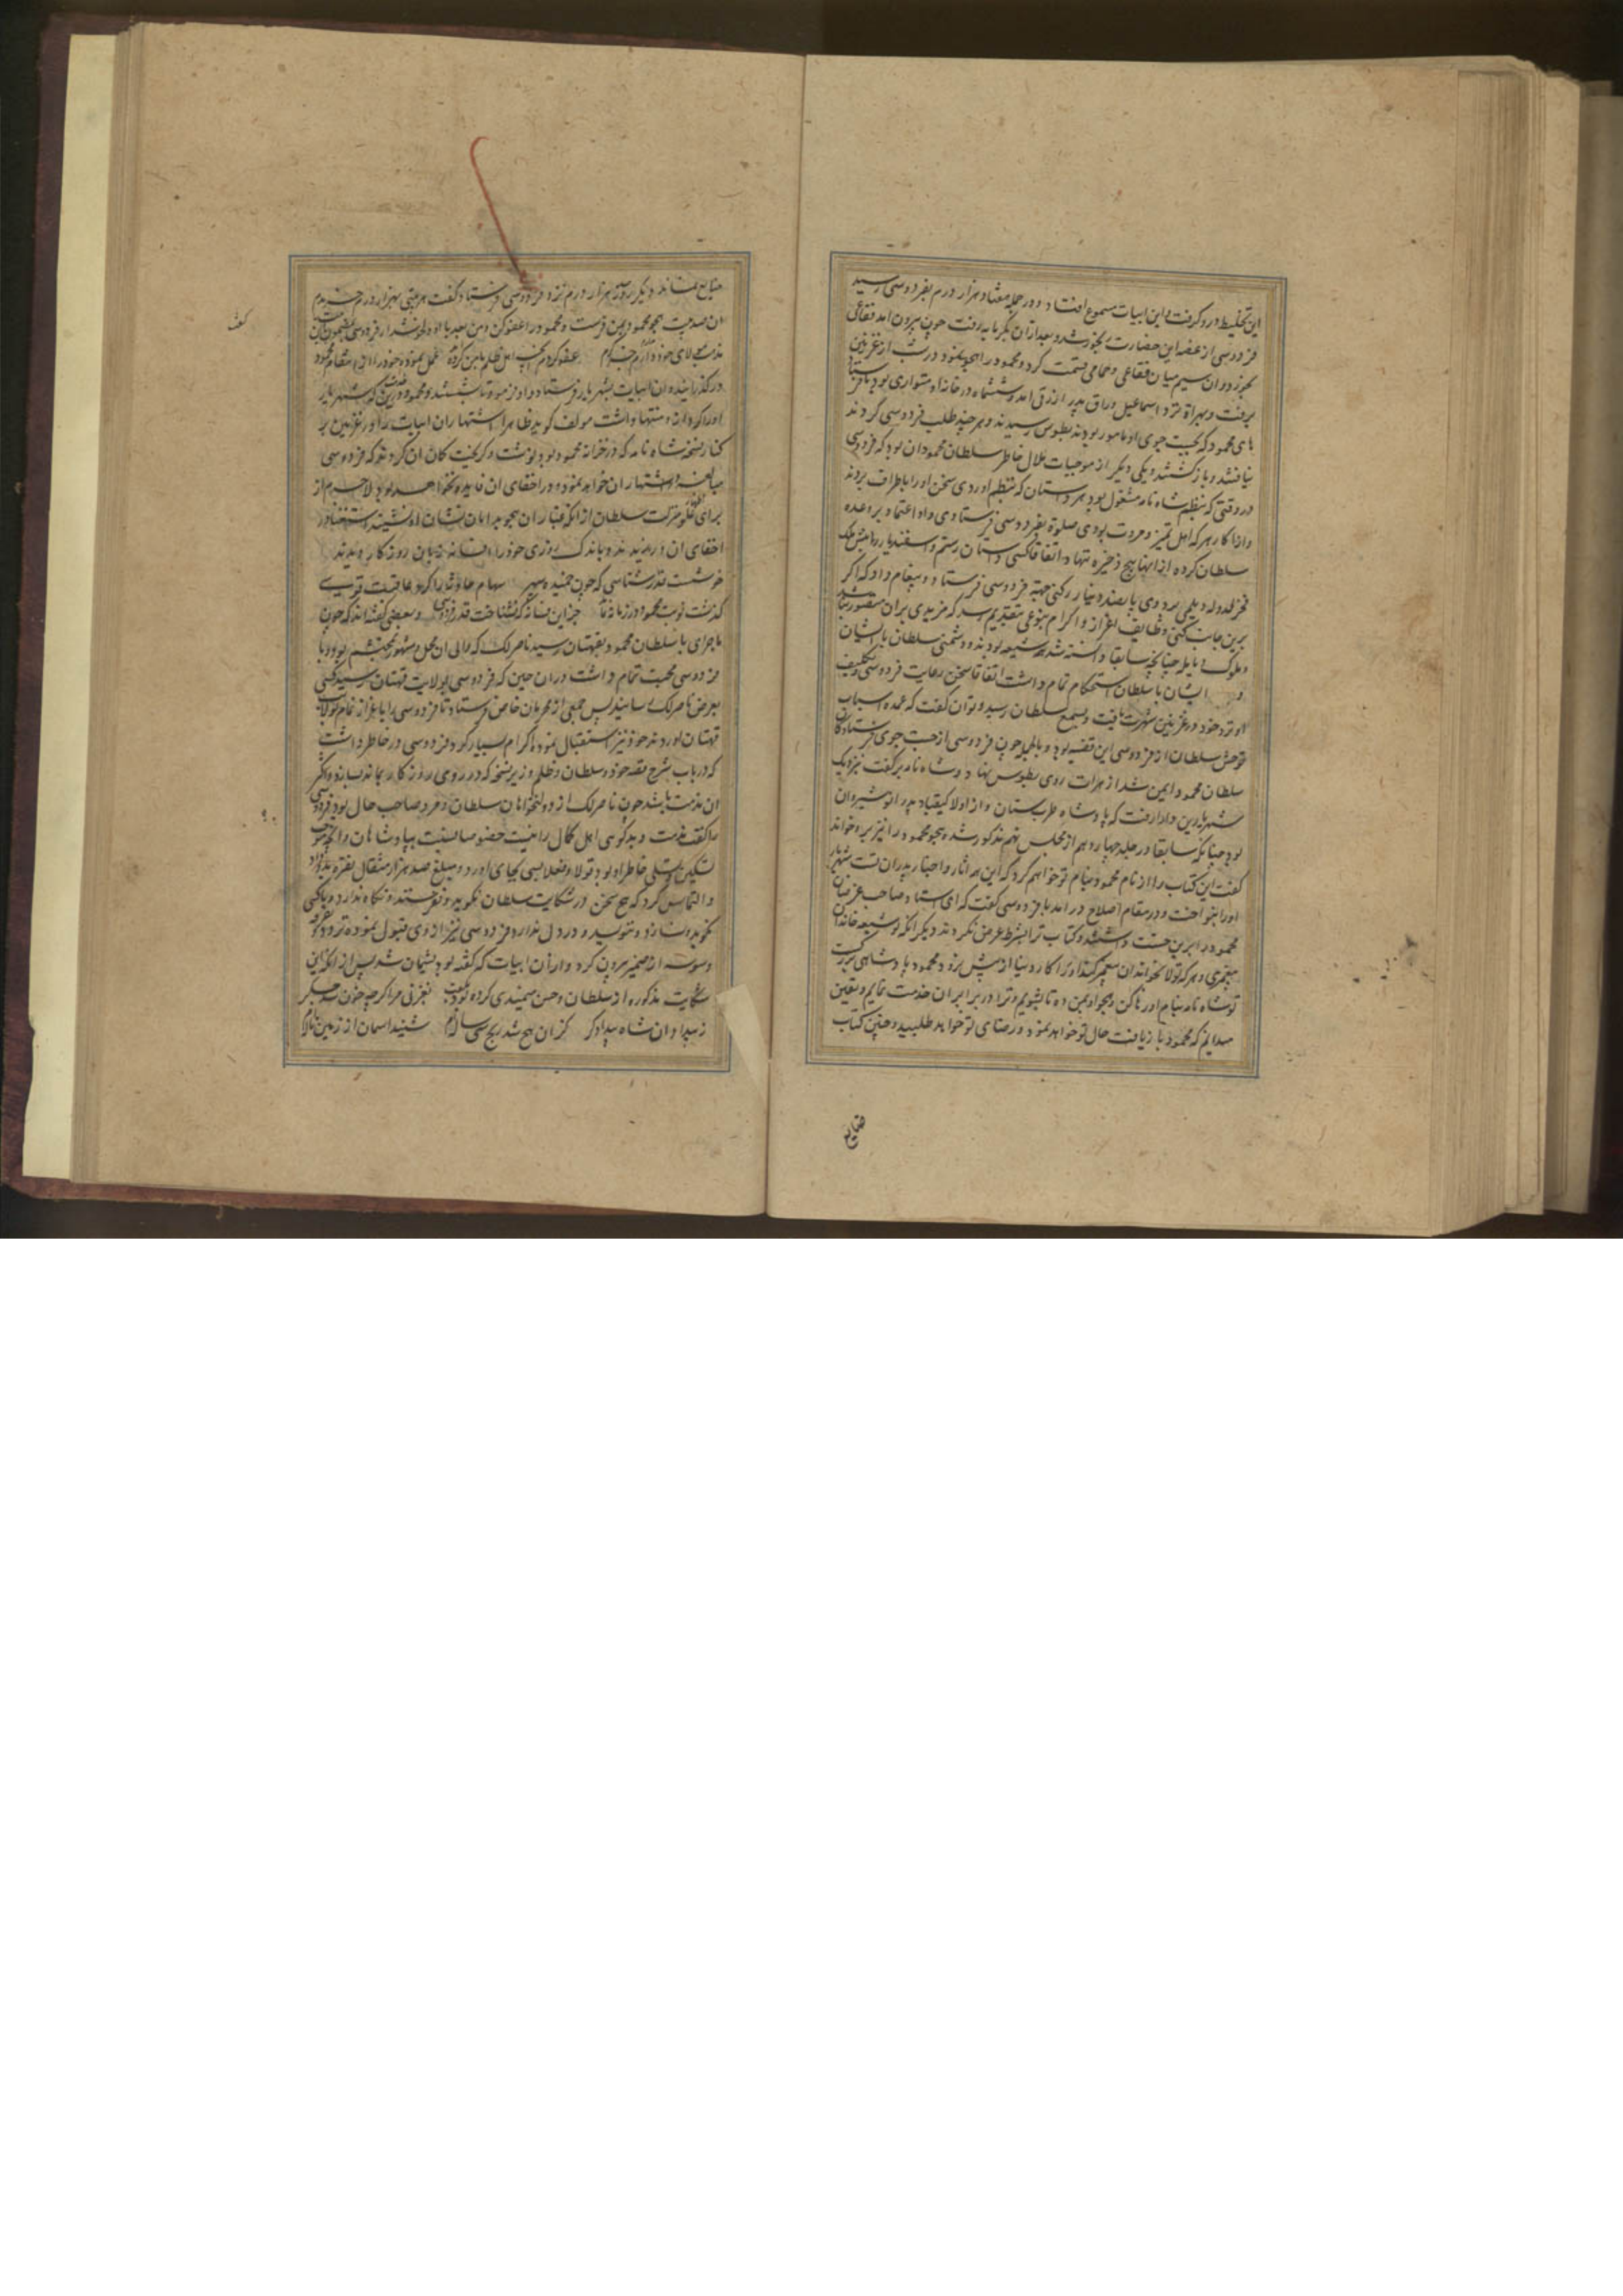 این تخلیط درو گرفت و این ابیات مسموع افتاد و در جمله هفتاد هزار درم بفردوسی رسید
فردوسی از غصه این حضارت رنجور شد و بعد ازان بگرمابه رفت چون بیرون امد فقاعی
بخورد و ان سیم میان فقاعی و حمامی قسمت کرد و محمود را هجو نمود و در شب از غزنین
برفت و بهراة نزد اسماعیل وراق پدر ازرقی امد و ششماه در خانه او متواری بود تا فرستاد
های محمود که بجست جوی او مامور بودند بطوس رسیدند و هر چند طلب فردوسی کردند
نیافتند و بازگشتند و یکی دیگر از موجبات ملال خاطر سلطان محمود ان بود که فردوسی
در وقتی که بنظم شاه نامه مشغول بود هر داستان که بنظم اوردی سخن او را باطراف بردند
و از اکابر هر که اهل تمیز و مروت بودی صلوة بفردوسی فرستادی و او اعتماد بر وعده
سلطان کرده از انها هیچ ذخیره ننهاد اتفاقا کسی داستان رستم و اسفندیار را پیش ملک
فخرالدوله دیلمی برد وی پانصد دینار رکنی جهة فردوسی فرستاد و پیغام داد که اگر
برین جانب کنی وظایف اعزاز و اکرام بنوعی بتقدیم رسد که مزیدی بران متصور نباشد
و ملوک دیالمه چنانچه سابقا دانسته شد شیعه بودند و دشمنی سلطان با ایشان
و ایشان با سلطان استحکام تمام داشت اتفاقا سخن رعایت فردوسی و تکلیف
او نزد خود در غزنین شهرت یافت و بسمع سلطان رسید و توان گفت که عمده اسباب
توحش سلطان از فردوسی این قضیه بود و بالجمله چون فردوسی از جست جوی فرستادگان
سلطان محمود ایمن شد از هرات روی بطوس نهاد و شاه نامه برگفت نزدیک
شهریار بن دارا رفت که پادشاه طبرستان و از اولاد کیقباد پدر انوشیروان
بود چنانکه سابقا در جلد چهاردهم از مجلس نهم مذکور شد و هجو محمود را نیز برو خواند
گفت این کتاب را از نام محمود بنام تو خواهم کرد که این همه اثار و اخبار پدران تست شهریار
او را بنواخت و در مقام اصلاح در امد با فردوسی گفت که ای استاد صاحب غرضان
محمود را برین جست داشتند و کتاب ترا بشرط عرض نکردند دیگر انکه تو شیعه خاندان
پیغمبری و هر که تولا بخاندان پیغمبر کند او را کار دنیا از پیش نرود محمود پادشاهی بزرگست
تو شاه نامه بنام او رها کن و هجو او بمن ده تا بشویم و ترا در برابر ان خدمت نمایم و یقین
میدانم که محمود باز یافت حال تو خواهد نمود و رضای تو خواهد طلبید و چنین کتاب
ضایع
ضایع نماند دیگر روز هزار درم نزد فردوسی فرستاد گفت هر بیتی بهزار درم خریدم
ان صد بیت هجو محمود بمن فرست و محمود را عفو کن و من بعد با او دلخوش دار فردوسی بمضمون این
عفو کردم انچه اهل ظلم با من کرده عمل نموده خود را ازین مقام محمود
درگذرانید و ان ابیات بشهریار فرستاد و او فرمود تا شستند
او را کردارند و منتها داشت مولف گوید ظاهرا اشتهار ان ابیات را در غزنین بر
کنار نسخه شاه نامه که در خزانه محمود بود نوشت و گریخت کان ان کرد تو که فردوسی
مبالغه در اشتهار ان خواهد نمود و در اخفای ان فایده نخواهد بود لاجرم از
برای علو منزلت سلطان از انکه غبار ان هجو بدامان نشان او نشیند
اخفای ان ورزیدند و باندک روزی خود را افسانه زبان روزگار دیدند
خوشست قدرشناسی که چون خمیده سپهر سهام حادثه را کرد عاقبت قوسے
گذشت نوبت محمود در زمانه نماند جز این فسانه که نشناخت قدر فردوسی و بعضی گفته اند که چون
ماجرای با سلطان محمود بقهستان رسید ناصر لک که والی ان محل و مشهور محتشم بود و با
فردوسی محبت تمام داشت دران حین که فردوسی بولایت قهستان رسید کسی
بعرض ناصر لک رسانیدند پس جمعی از مجریان خاص فرستاد تا فردوسی را باعزاز تمام بولایت
قهستان اوردند خود نیز استقبال نموده اکرام بسیار کرد و فردوسی در خاطر داشت
که در باب شرح قصه خود و سلطان و ظلم وزیر نسخه که در روی روزگار بماند بسازد و اگر
ان مذمت باشد چون ناصر لک از دولتخواهان سلطان و مرد صاحب حال بود فردوسی
را گفت مذمت و بدگوئی اهل کمال را نیست خصوصا نسبت بپادشاهان و انچه موجب
تسکین و تسلی خاطر او بود قولا و فعلا بسی بجای اورد و مبلغ صد هزار مثقال نقره بدو داد
و التماس کرد که هیچ سخن در شکایت سلطان نگوید و نفرستد و نگاه ندارد و با کسی
نگوید و نسازد و ننویسد و در دل ندارد فردوسی نیز از وی قبول نموده
وسوسه از ضمیر بیرون کرد و ازان ابیات که گفته بود پشیمان شد پس از انکه این
شکایت مذکوره از سلطان و حسن میمندی کرده بود بغزنی مرا گرچه خون شد جگر
ز بیداد ان شاه بیدادگر کزان هیچ شد رنج سی ساله ام شنید اسمان از زمین ناله ام